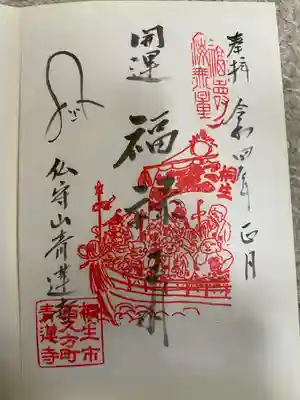 奉拝 令和四年正月
福壽
海無量
桐生
開運
福禄寿
仏守山青蓮寺
桐生市
西久方町
青蓮寺